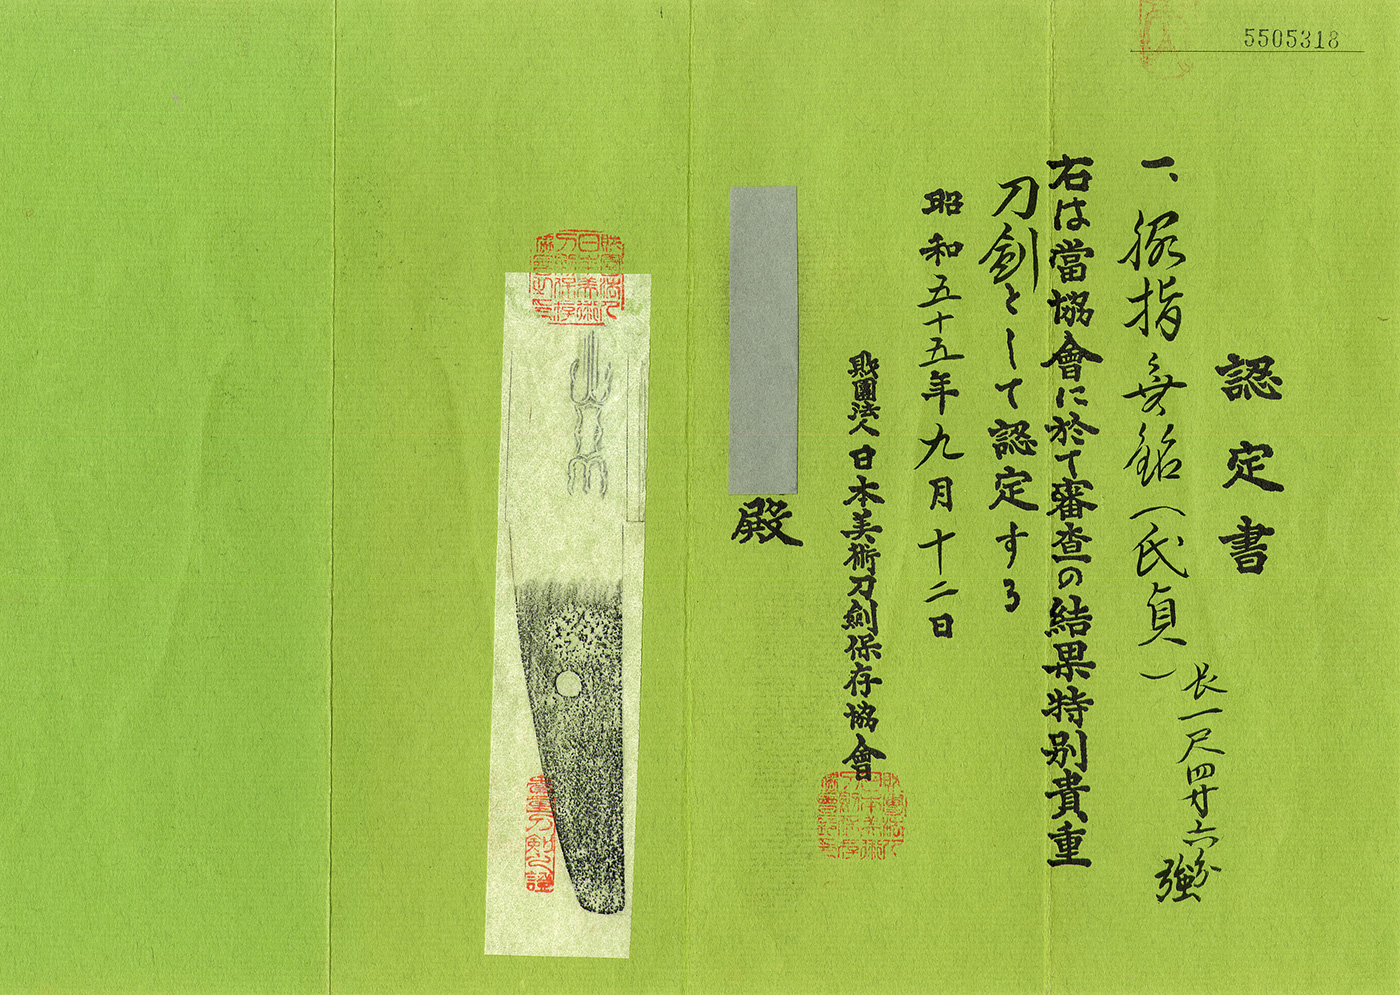 5505318
認定書
一、脇指 無銘(氏貞) 長一尺四寸六分強
右は當協會に於て審査の結果特別貴重
刀劍として認定する
昭和五十五年九月十二日
殿
財團法人日本美術刀劍保存協會
貴重刀剣之証